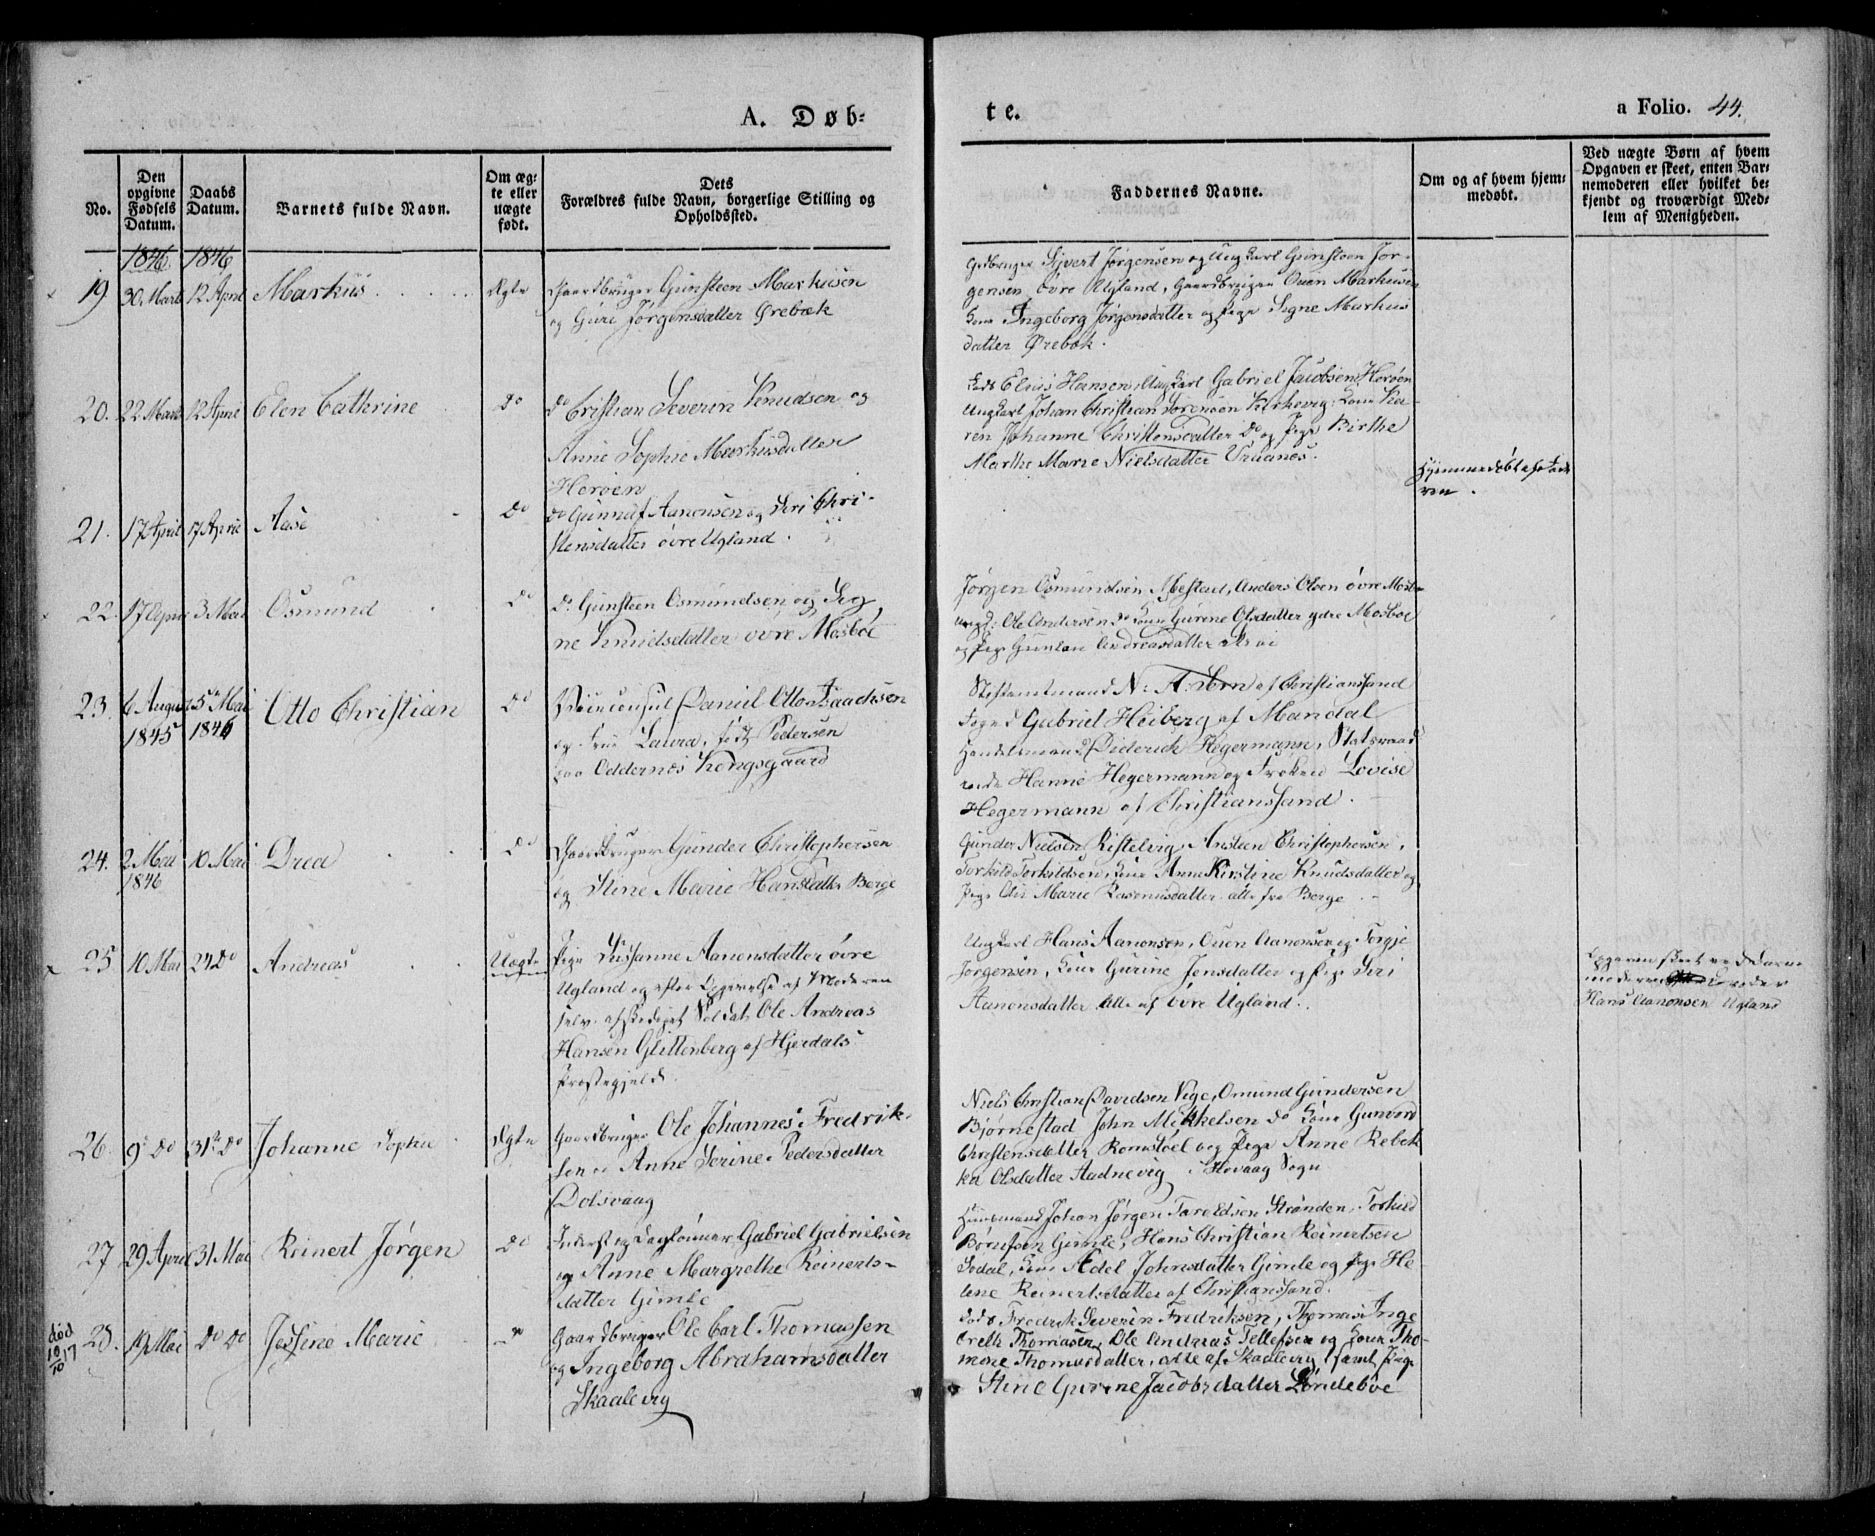 A. Døb-
te.
a Folio. 44.
No.
Den
opgivne
Fødsels
Datum.
Daabs
Datum.
Barnets fulde Navn.
Om æg-
te eller
uægte
født.
Dets
Forældres fulde Navn, borgerlige Stilling og
Opholdssted.
Faddernes Navne.
Om og af hvem hjem-
medøbt.
Ved uægte Børn af hvem
Opgaven er skeet, enten Bar-
nemoderen eller hvilket be-
kjendt og troværdigt Med-
lem af Menigheden.
1846 1846
19 30. Marts 12 April Markus Ægte Gaardbruger Gunsteen Markusen
og Guri Jørgensdatter Ørebæk
Sivert Jørgensen og Ungkarl Gunsteen Jør-
gensen øvre Ugland, Gaardbruger Ouen Markusen
Kone Ingeborg Jørgensdatter og Pige Signe Markus
datter Ørebæk.
20. 22 Marts 12 April Elen Cathrine Do Do Cristian Severin Knudsen og
Anne Sophie Markusdatter
Herøen
Elius Hansen, Ungkarl Gabriel Jacobsen Herøen
Ungkarl Johan Christian Sørensen Kirkevig, Kone Ka-
ren Johanne Christensdatter Do og Pige Birthe
Marthe Marie Nielsdatter
21. 17 April 17 April Aase Do Do Gunnuf Aanonsen og Siri Chri-
stensdatter øvre Ugland.
Hjemmedøbt af Fade-
ren.
22. 17 April 3 Mai Osmund Do Do Gunsteen Osmundsen og Sig
ne Knudsdatter øvre Mosbøe
Jørgen Osmundsen Abestad, Anders Olsen øvre Mosb
Ole Andersen Do Kone Gurine Olsdatter ydre Mosboe
og Pige Gunlau Andreasdatter
23. 6 August 5te Mai Otto Christian Do Viceconsul Daniel Otto Isaachsen
1845 1846
og Frue Laura, født Pedersen
paa Oddernes Kongsgaard
Stiftamtmand N: A: Sem af Christiansand
Foged Gabriel Heiberg af Mandal
Handelsmand Diderich Hegermann, Statsraad
inde Hanne Hegermann og Frøken Lovise
Hegermann af Christianssand.
24. 2 Mai 10 Mai Drea Do Gaardbruger Gunder Christophersen
1846
og Stine Marie Hansdatter Berge
Gunder Nielsen Kistelvig, Ansteen Christophersen,
Torkild Torkildsen, Kone Anne Kirstine Knudsdatter og
Pige Marie Rasmusdatter alle fra Berge.
25 10 Mai 24 Do Andreas Uægte Pige Susanne Aanonsdatter øvre
Ugland og efter Opgivelse af Moderen
selv afskediget Soldat Ole Andreas
Hansen Glittenberg af Hjerdals
Præstegjeld
Ungkarl Hans Aanonsen, Ouen Aanonsen og Torgje
Jørgensen, Kone Gurine Jensdatter og Pige Siri
Aanonsdatter Alle af øvre Ugland.
Opgaven skeet ved Barne
moderens Broder
Hans Aanonsen Ugland
26. 9de Do 31te Do Johanne Sophie Ægte Gaardbruger Ole Johannes Fredrik-
sen og Anne Serine Pedersdatter
Dolsvaag
Niels Christian Davidsen Vige, Omund Gundersen
Bjørnestad John Mikkelsen Do Kone Gunvord
Christensdatter Romstøel og Pige Anne Rebek
ka Olsdatter Aadnevig i Høvaag Sogn
27 29 April 31 Mai Reinert Jørgen Do Inderst og Daglønner Gabriel Gabrielsen
og Anne Margrethe Reinerts-
datter Gimle
Huusmand Johan Jørgen Taraldsen Stranden, Torkild
Børufsen Gimle, Hans Christian Reinertsen
Sødal, Kone Ædel Johnsdatter Gimle og Pige He
lene Reinertsdatter af Christianssand.
død
10/10 17
28. 19 Mai Do Do Jessine Marie Gaardbruger Ole Carl Thomassen
og Ingeborg Abrahamsdatter
Skaalevig
Fredrik Severin Fredriksen, Thomas Inge
breth Thomasen, Ole Andreas Tellefsen og Kone Tho-
mine Thomasdatter, alle af Skaalevig, samt Pige
Stine Gurine Jacobsdatter Lindebøe